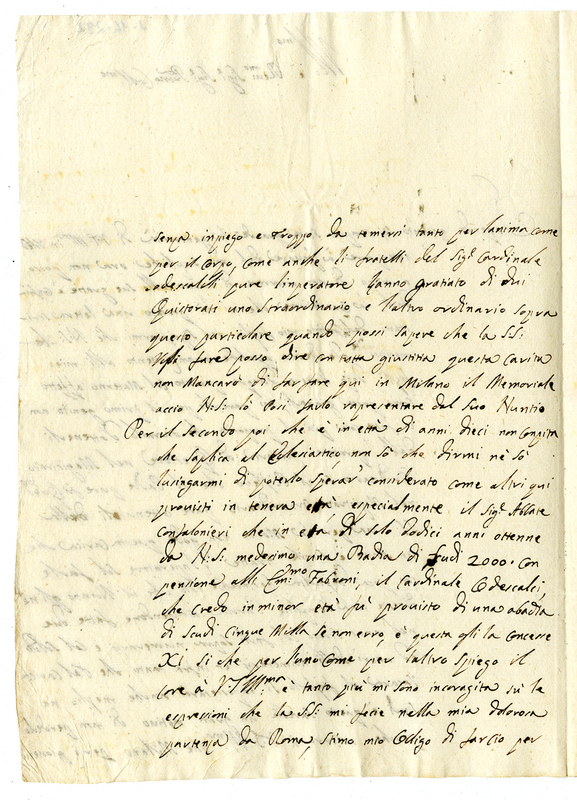 senza inpiego e troppo da temersi tanto per lanima come
per il corpo, come anche li fratelli del Sig.r Cardinale
odescalchi pure l'inperatore hanno gratiato di dui
Questorati uno straordinario e l'altro ordinario sopra
questo particolare quando possi sapere che la S.S:
vogli fare posso dire con tutta giustitia questa carita
non Mancarò di far fare qui in Milano il Memoriale
accio N:S: lo possi farlo rapresentare dal suo Nuntio
Per il secondo poi che è in età di anni dieci non conpita
che s'aplica al Eclesiastico non sò che dirmi ne sò
lusingarmi di poterlo sperar considerato come altri qui
provisti in tenera età especialmente il Sig.r Abbate
Confalonieri che in età di solo dodici anni ottenne
da N:S: medesimo una Badia di scudi 2000. con
pensione all Em:mo Fabroni, il Cardinale Odescalci,
che credo in minor età fù provisto di una abadia
di scudi Cinque Milla se non erro, è questa gli la concesse
XI si che per l'uno come per l'altro spiego il
core à V S Ill:ma è tanto più mi sono incoragita sù le
espressioni che la S.S: mi fecie nella mia dolorosa
partenza da Roma, stimo mio Obligo di farcio per